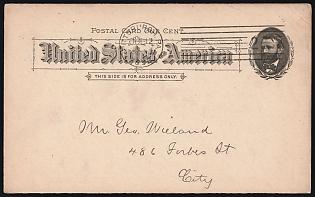 POSTAL CARD ONE CENT.
United States of America
THIS SIDE IS FOR ADDRESS ONLY.
Mr. Geo. Wieland
486 Forbes St
City